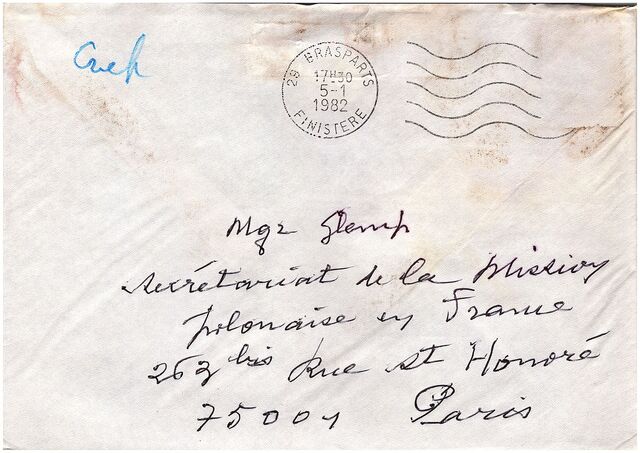 29 BRASPARTS
17H30
5-1
1982
FINISTERE
Mgr Glemp
Secrétariat de la Mission
polonaise en France
263 bis Rue St Honoré
75001 Paris